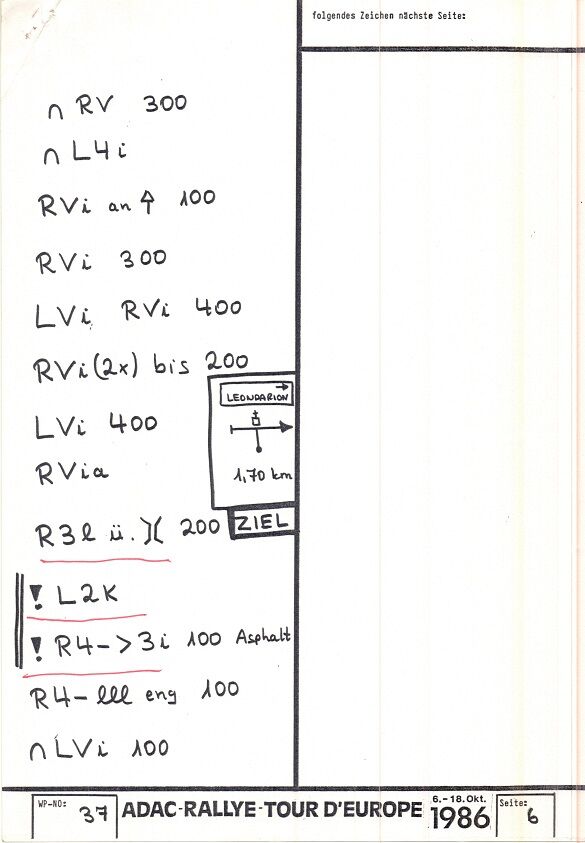 folgendes Zeichen nächste Seite:
∩ RV 300
∩ L4i
RVi an ↑ 100
RVi 300
LVi RVi 400
RVi (2x) bis 200
LEONDARION
LVi 400
1,70 km
RVia
R3l ü. )( 200
ZIEL
! L2K
! R4->3i 100 Asphalt
R4-lll eng 100
∩ LVi 100
WP-NO: 37
ADAC-RALLYE-TOUR D'EUROPE
6.-18.Okt.
1986
Seite: 6